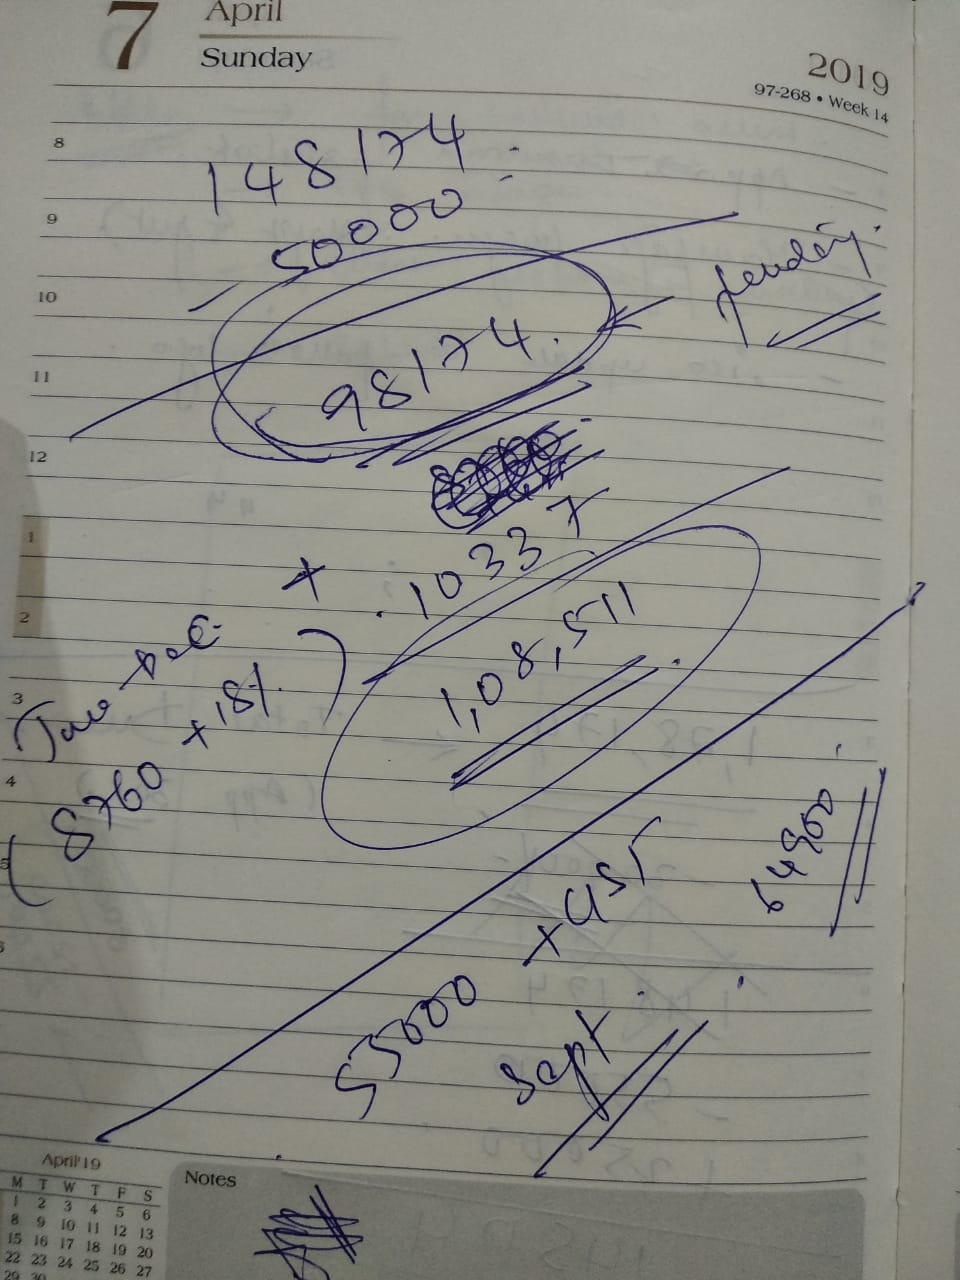 7 April
Sunday
2019
97-268 • Week 14
8
148174
9
50000
pending
10
98174
11
12
1
+ 10337
2
1,08,511
3
(8760 +18%)
4
64900
5
55000 + GST
Sept
April'19
M T W T F S
1 2 3 4 5 6
8 9 10 11 12 13
15 16 17 18 19 20
22 23 24 25 26 27
29 30
Notes